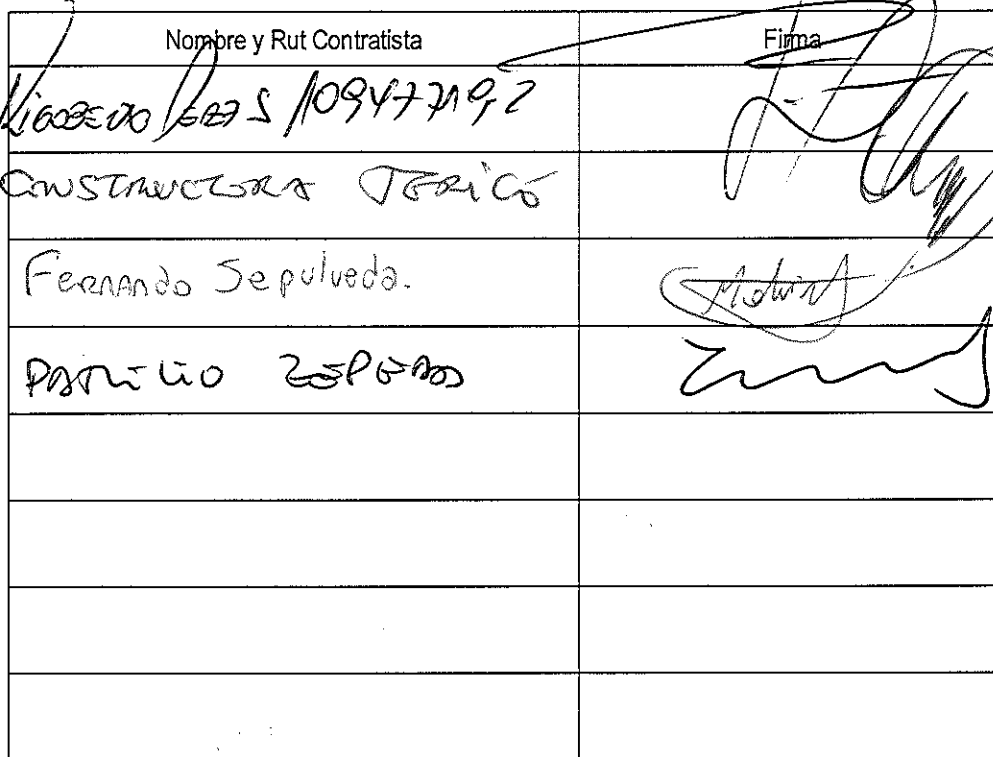 Nombre y Rut Contratista
Firma
Rigoberto Perez S / 10947719,2
CONSTRUCTORA JERICÓ
Fernando Sepulveda.
PATRICIO ZEPEDA